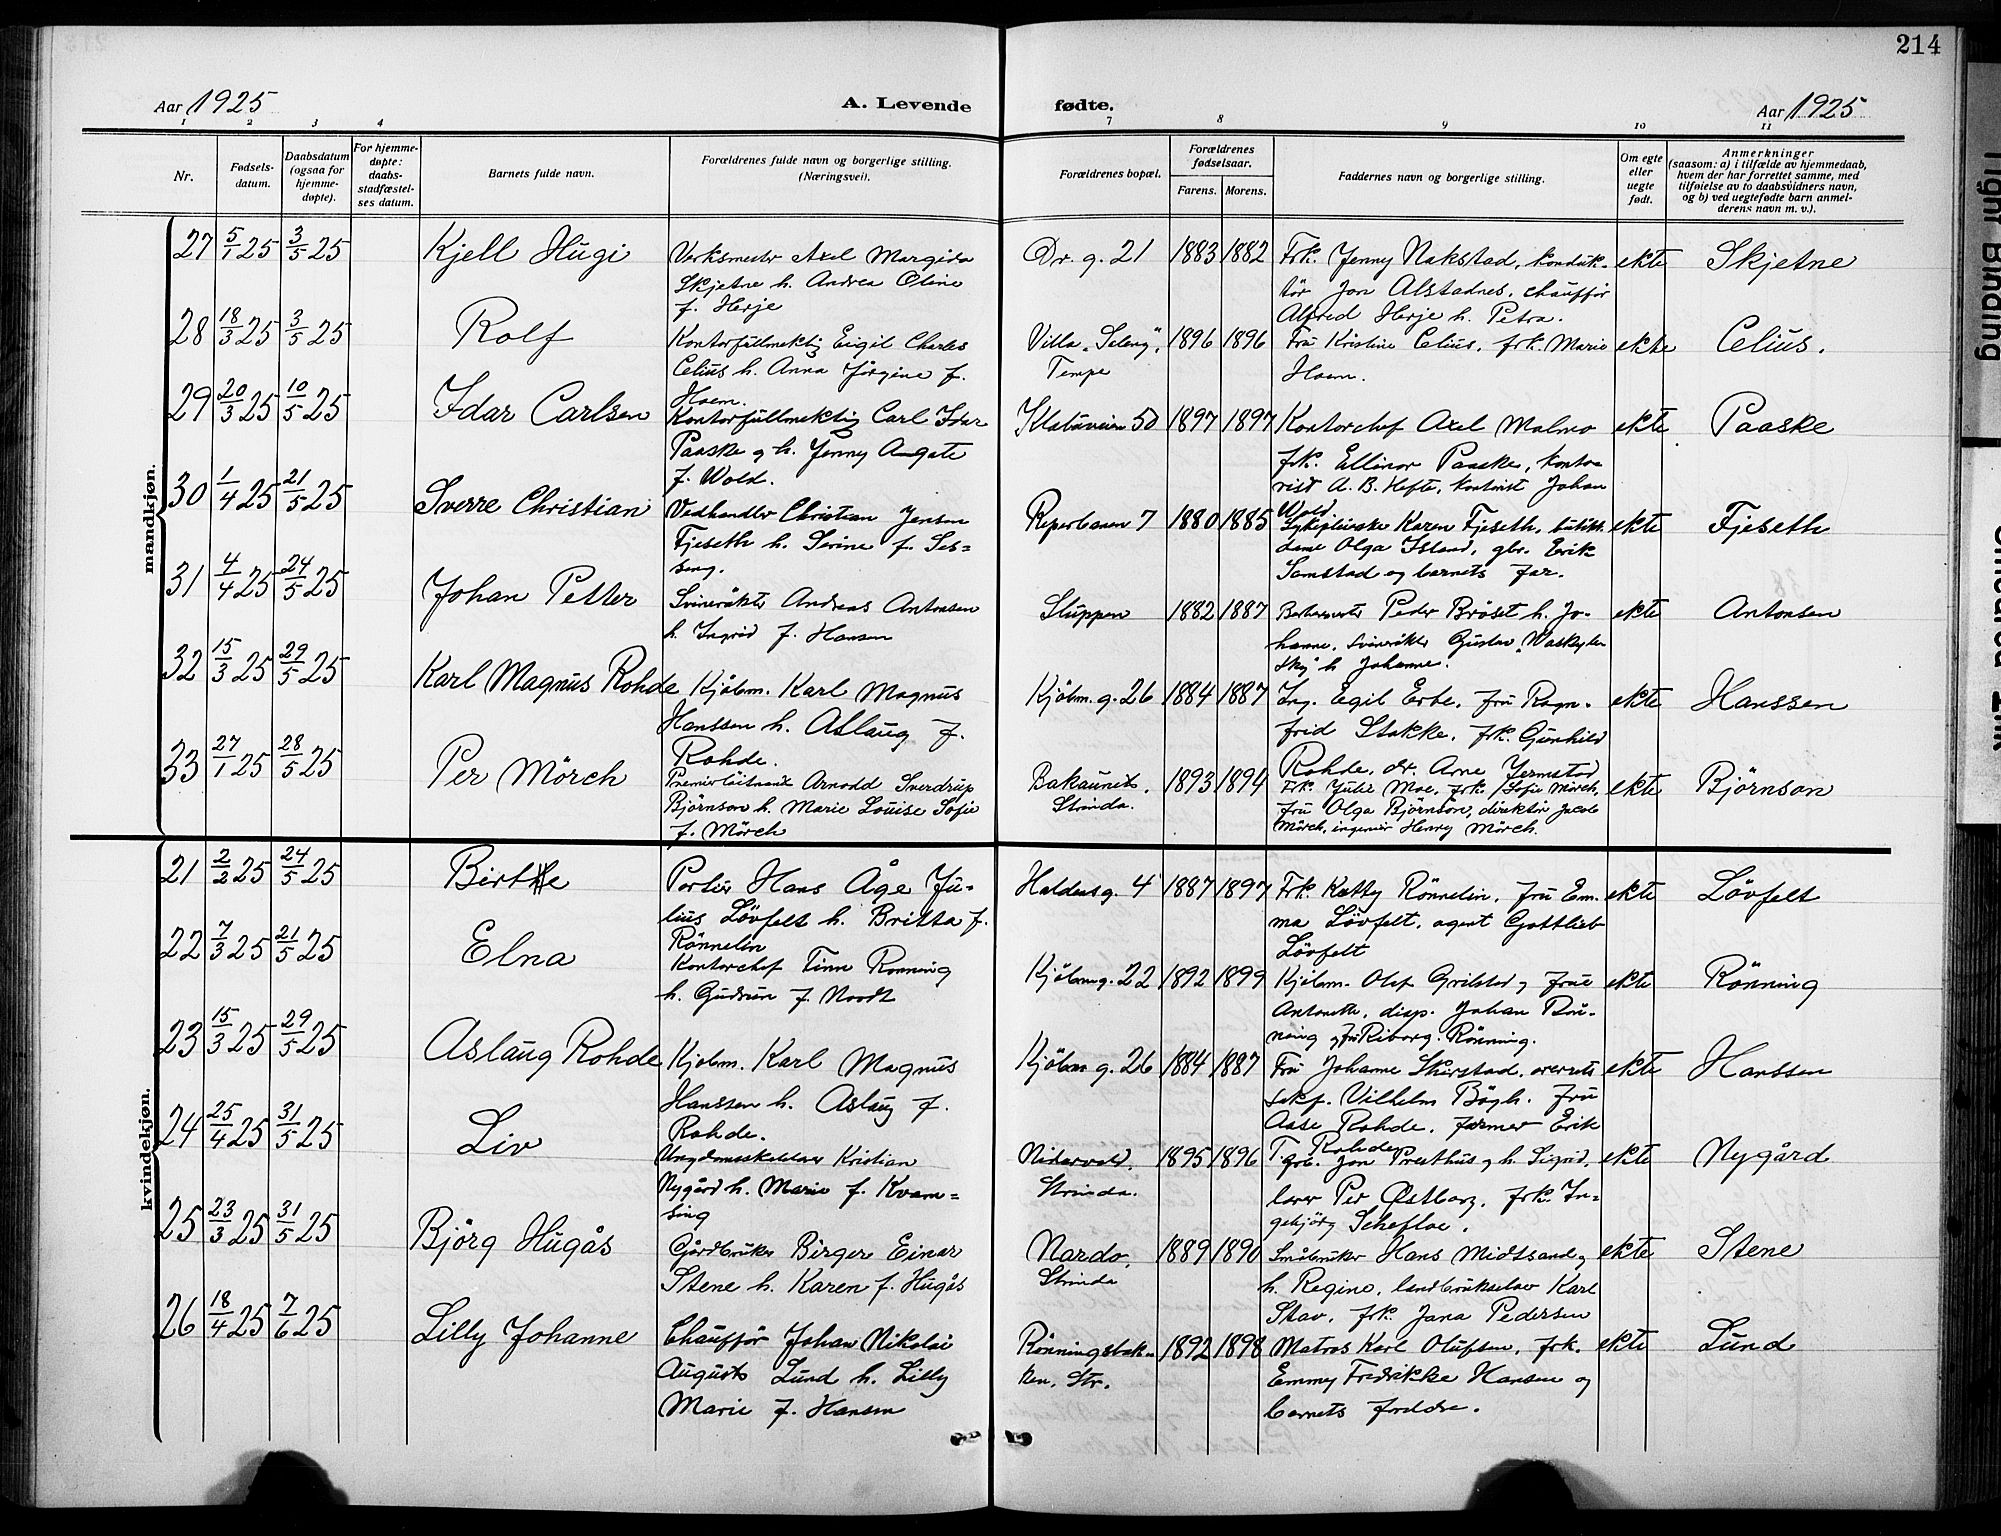 214
Aar 1925
A. Levende
fødte.
Aar 1925
1 2 3 4 7 8 9 10 11
Nr.
Fødsels-
datum.
Daabsdatum
(ogsaa for
hjemme-
døpte).
For hjemme-
døpte:
daabs-
stadfæstel-
ses datum.
Barnets fulde navn.
Forældrenes fulde navn og borgerlige stilling.
(Næringsvei).
Forældrenes bopæl.
Forældrenes
fødselsaar.
Farens. Morens.
Faddernes navn og borgerlige stilling.
Om egte
eller
uegte
født.
Anmerkninger
(saasom: a) i tilfælde av hjemmedaab,
hvem der har forrettet samme, med
tilføielse av to daabsvidners navn,
og b) ved uegtefødte barn anmel-
derens navn m. v.).
mandkjøn.
27 5/1 25 3/5 25 Kjell Hugi
Verksmester Axel Margido
Skjetne h. Andrea Oline
f. Herje
Dr. g. 21 1883 1882
Frk. Jenny Nakstad, konduk-
tør Jon Alstadnes, chauffør
Alfred Herje h. Petra.
ekte Skjetne
28 18/3 25 3/5 25 Rolf
Kontorfullmektig Eigil Charles
Celius h. Anna Jörgine f.
Hoem.
Villa "Seleng",
Tempe
1896 1896
Fru Kristine Celius, frk. Marie
Hoem.
ekte Celius.
29 20/3 25 10/5 25 Idar Carlsen
Kontorfullmektig Carl Idar
Paaske og h. Jenny Agate
f. Wold.
Klæbuveien 50 1897 1897
Kontorchef Axel Malmo
frk. Ellinor Paaske, konto-
rist A. B. Hefte, kontorist Johan
Wold
ekte Paaske
30 1/4 25 21/5 25 Sverre Christian
Vedhandler Christian Jensen
Fjeseth h. Serine f. Ses-
seng.
Reperbanen 7 1880 1885
Sykepleierske Karen Fjeseth, butikk-
dame Olga Island, gbr. Erik
Samstad og barnets far.
ekte Fjeseth
31 4/4 25 24/5 25 Johan Petter
Svinerøkter Andreas Antonsen
h. Ingrid f. Hansen
Sluppen 1882 1887
Peder Bröset h. Jo-
hanne, svinerøkter Gustav
h Johanne.
ekte Antonsen
32 15/3 25 29/5 25 Karl Magnus Rohde
Kjöbm. Karl Magnus
Hanssen h. Aslaug f.
Rohde.
Kjöbm. g. 26 1884 1887
Ing. Egil Erbe, fru Ragn-
frid Stokke, frk. Gunhild
Rohde, dr. Arne Jermstad
ekte Hanssen
33 27/1 25 28/5 25 Per Mörch
Premierløitnant Arnodd Sverdrup
Björnson h. Marie Louise Sofie
f. Mörch
Bakaunet,
Strinda.
1893 1894
Frk. Julie Moe, frk. Sofie Mörch,
fru Olga Björnson, direktör Jacob
Mörch, ingeniör Henry Mörch.
ekte Björnson
kvindekjøn.
21 2/2 25 24/5 25 Birthe
Portier Hans Åge Ju-
lius Lövfelt h. Britta f.
Rönnelin
Haldensg. 4 1887 1897
Frk. Katty Rönnelin, fru Em-
ma Lövfelt, agent Gottlieb
Lövfelt
ekte Lövfelt
22 7/3 25 21/5 25 Elna
Kontorchef Finn Ronning
h. Gudrun f. Noodt
Kjöbmg. 22 1892 1899
Kjöbm. Olef Grilstad og frue
Antonette, disp. Johan Rön-
ning og fru Riborg. Rönning.
ekte Rönning
23 15/3 25 29/5 25 Aslaug Rohde
Kjobm. Karl Magnus
Hanssen h. Aslaug f.
Rohde.
Kjöbm g. 26 1884 1887
Fru Johanne Skirstad, overrets
sakf. Vilhelm Bögh. fru
Aase Rohde, farmer Erik
Rohde
ekte Hanssen
24 25/4 25 31/5 25 Liv
Ungdomsskolelærer Kristian
Nygård h. Marie f. Kvam-
sing
Nidarvold,
Strinda.
1895 1896
gbr. Jon Presthus og h. Sigrid,
lærer Per Østborg, frk. In-
gebjörg Schefloe.
ekte Nygård
25 23/3 25 31/5 25 Björg Hugås
Gårdbruker Birger Einar
Stene h. Karen f. Hugås
Nardo,
Strinda
1889 1890
Småbruker Hans Midtsand og
h. Regine, landbrukselev Karl
Stav, frk. Jana Pedersen
ekte Stene
26 18/4 25 7/6 25 Lilly Johanne
Chauffør Johan Nikolai
August Lund h. Lilly
Marie f. Hansen
Rönningsbak-
ken, Str.
1892 1898
Matros Karl Olufsen, frk.
Emmy Fredrikke Hansen og
barnets foreldre.
ekte Lund
Tight Binding